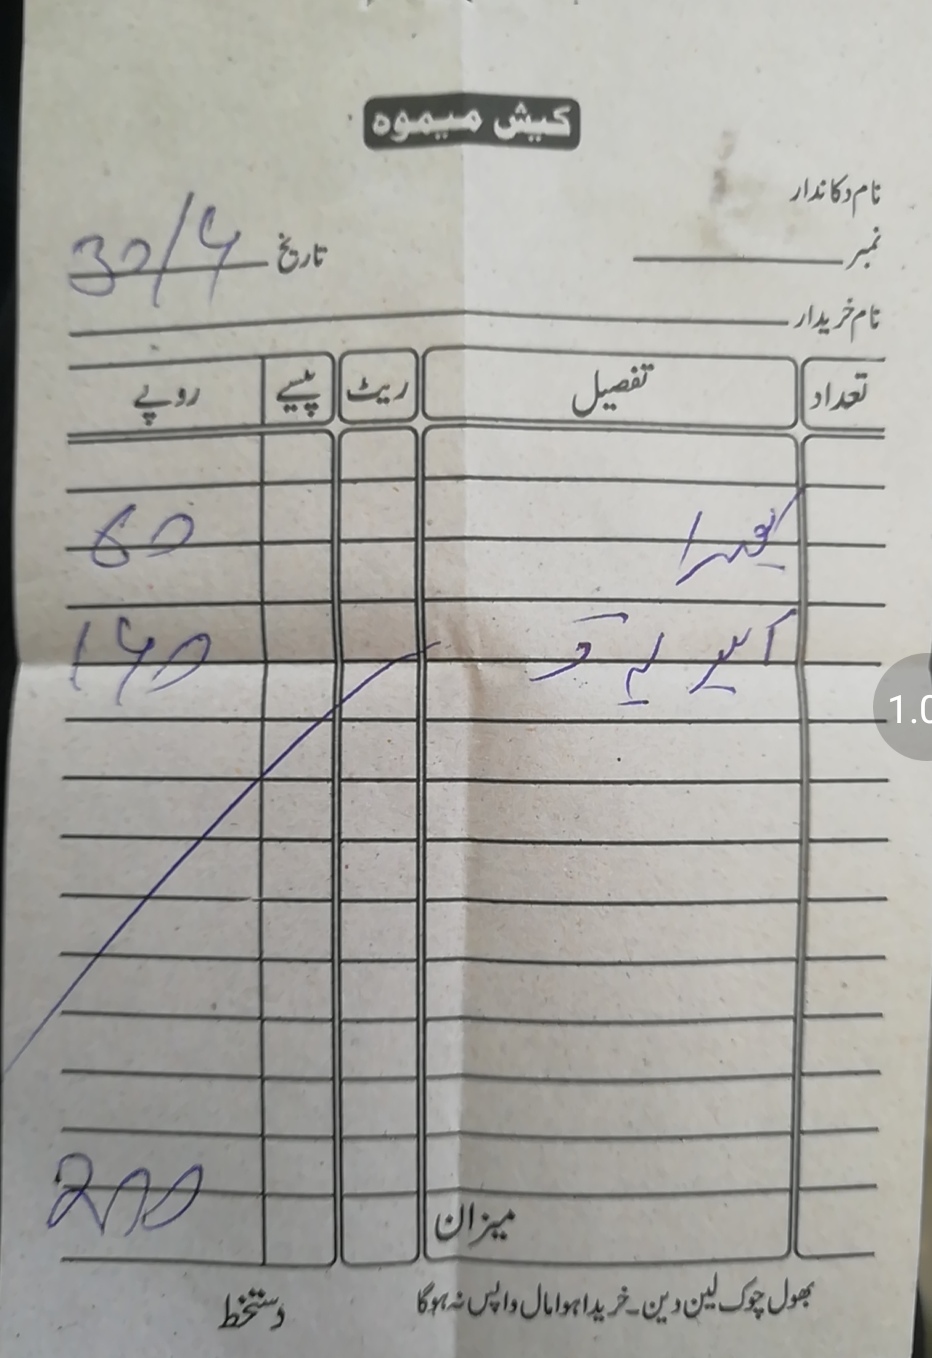 کیش میمو
نام دکاندار
نمبر
تاریخ 30/4
نام خریدار
تعداد تفصیل ریٹ پیسے روپے
کھیرا 60
140
میزان 200
بھول چوک لین دین۔ خریدا ہوا مال واپس نہ ہوگا
دستخط
1.0